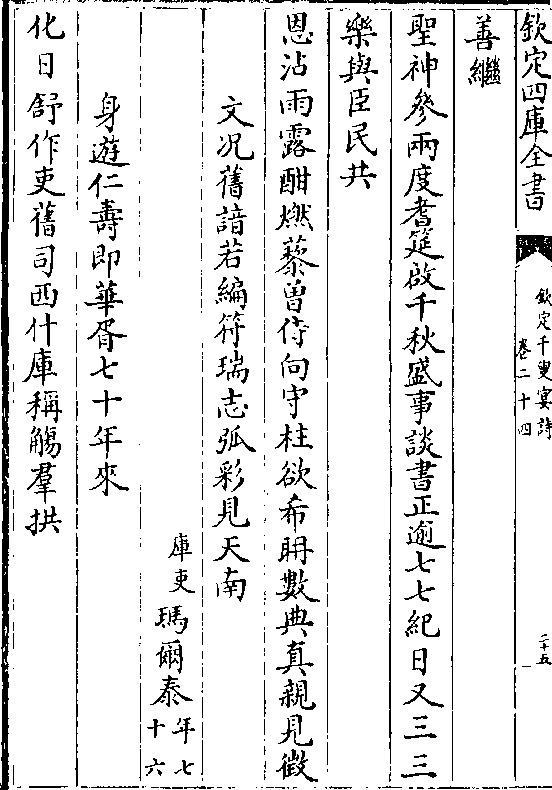 欽定四庫全書
欽定千叟宴詩
卷二十四
二十五
善繼
聖神參兩度耆筵啟千秋盛事談書正逾七七紀日又三三
樂與臣民共
恩沾雨露酣燃藜曾侍向守柱欲希聃數典真親見徵
文况舊諳若編符瑞志弧彩見天南
庫吏瑪爾泰年七十六
身遊仁壽即華胥七十年來
化日舒作吏舊司西什庫稱觴羣拱